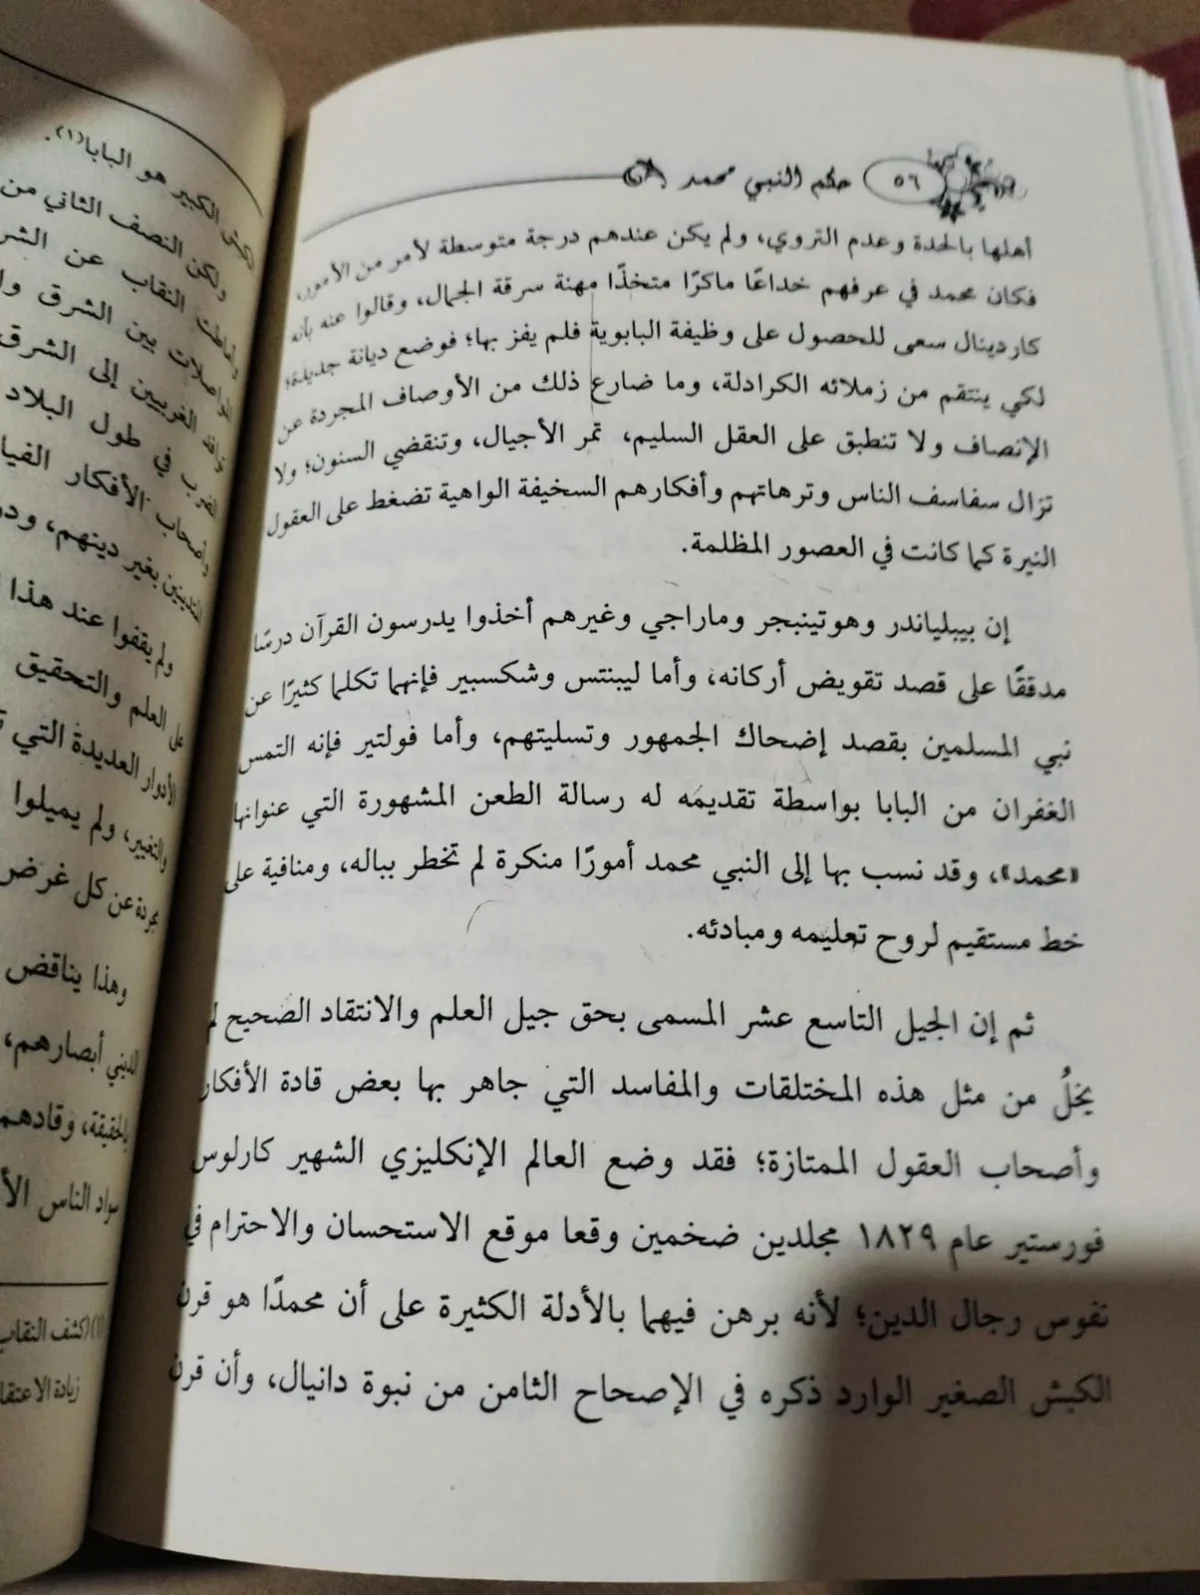 ٥٦ حكم النبي محمد
أهلها بالحدة وعدم التروي، ولم يكن عندهم درجة متوسطة لأمر من الأمور،
فكان محمد في عرفهم خداعًا ماكرًا متخذًا مهنة سرقة الجمال، وقالوا عنه بأنه
كاردينال سعى للحصول على وظيفة البابوية فلم يفز بها؛ فوضع ديانة جديدة؛
لكي ينتقم من زملائه الكرادلة، وما ضارع ذلك من الأوصاف المجردة عن
الإنصاف ولا تنطبق على العقل السليم، تمر الأجيال، وتنقضي السنون؛ ولا
تزال سفاسف الناس وترهاتهم وأفكارهم السخيفة الواهية تضغط على العقول
النيرة كما كانت في العصور المظلمة.
إن بيبلياندر وهوتينبجر وماراجي وغيرهم أخذوا يدرسون القرآن درسًا
مدققًا على قصد تقويض أركانه، وأما ليبنتس وشكسبير فإنهما تكلما كثيرًا عن
نبي المسلمين بقصد إضحاك الجمهور وتسليتهم، وأما فولتير فإنه التمس
الغفران من البابا بواسطة تقديمه له رسالة الطعن المشهورة التي عنوانها
«محمد»، وقد نسب بها إلى النبي محمد أمورًا منكرة لم تخطر بباله، ومنافية على
خط مستقيم لروح تعليمه ومبادئه.
ثم إن الجيل التاسع عشر المسمى بحق جيل العلم والانتقاد الصحيح لم
يخلُ من مثل هذه المختلقات والمفاسد التي جاهر بها بعض قادة الأفكار
وأصحاب العقول الممتازة؛ فقد وضع العالم الإنكليزي الشهير كارلوس
فورستير عام ١٨٢٩ مجلدين ضخمين وقعا موقع الاستحسان والاحترام في
نفوس رجال الدين؛ لأنه برهن فيهما بالأدلة الكثيرة على أن محمدًا هو قرن
الكبش الصغير الوارد ذكره في الإصحاح الثامن من نبوة دانيال، وأن قرن
الكبش الكبير هو البابا(١).
ولكن النصف الثاني من
وأماطت النقاب عن الشر
المواصلات بين الشرق وا
الغربيين إلى الشرق
الغرب في طول البلاد
وأصحاب الأفكار الفيا
المتدينين بغير دينهم، ود
ولم يقفوا عند هذا
على العلم والتحقيق
الأدوار العديدة التي
والتغيير، ولم يميلوا
مجردة عن كل غرض
وهذا يناقض
الديني أبصارهم،
بالحقيقة، وقادهم
سواد الناس الأ
(١) (كشف النقاب
زيادة الاعتقا